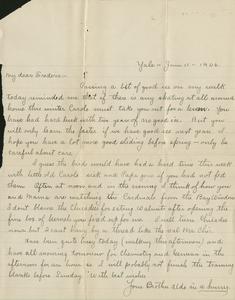 Yale - Jan. 11 - 1906.
My dear Isadore -
Passing a bit of good ice on my walk
today reminded me that if there is any skating at all around
home this winter Carola must take you out for a turn. You
have had hard luck with two years of no good ice. But you
will only learn the faster if we have good ice next year. I
hope you have a lot more good sliding before spring - only be
careful about cars.
I guess the birds would have had a hard time this week
with little old Carola sick and Papa gone if you had not fed
them. Often at noon and in the evening I think of how you
and Mama are watching the Cardinals from the
the Chicadees for eating walnuts after opening the
fine box of fennels you send up for me. I will
now but I cant by a thread like the
Have been quite busy today (walking this afternoon) and
have all morning tomorrow for chemistry and German in the
afternoon for an hour so I will probably not finish the training
blanks before Sunday. With best wishes
Your Brother Aldo in a hurry.